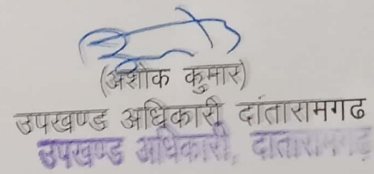 (अशोक कुमार)
उपखण्ड अधिकारी दांतारामगढ
उपखण्ड अधिकारी, दातारामगढ़